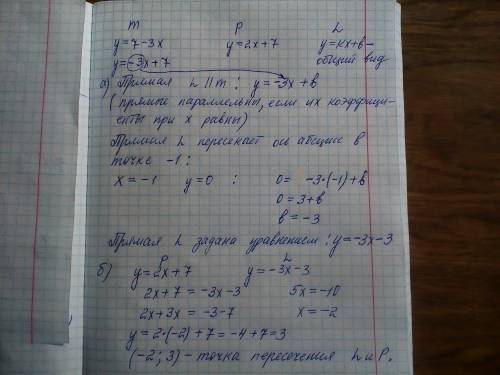 m P L
y=7-3x y=2x+7 y=kx+b-
y=-3x+7 общий вид
а) Прямая L || m: y=-3x+b
(прямые параллельны, если их коэффици-
енты при x равны)
Прямая L пересекает ось абсцисс в
точке -1:
x=-1 y=0 : 0= -3·(-1)+b
0=3+b
b=-3
Прямая L задана уравнением: y=-3x-3
P L
б) y=2x+7 y=-3x-3
2x+7=-3x-3 5x=-10
2x+3x=-3-7 x=-2
y=2·(-2)+7=-4+7=3
(-2; 3) - точка пересечения L и P.